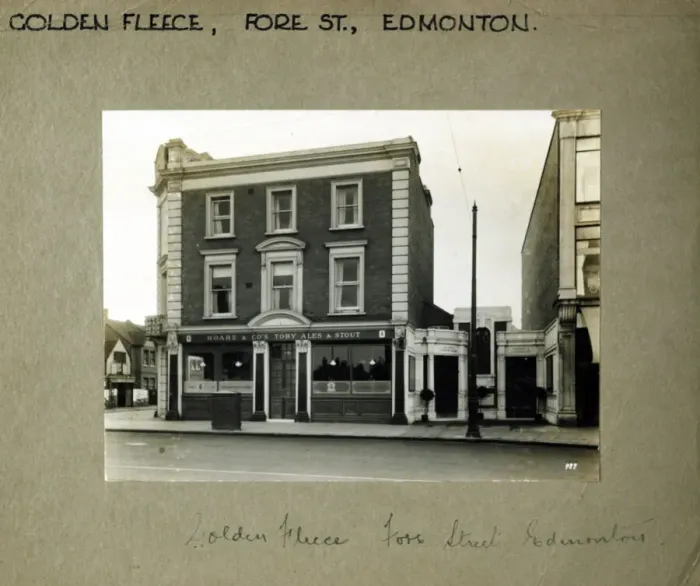 GOLDEN FLEECE, FORE ST., EDMONTON.
HOARE & CO'S TOBY ALES & STOUT
187
Golden Fleece Fore Street Edmonton.